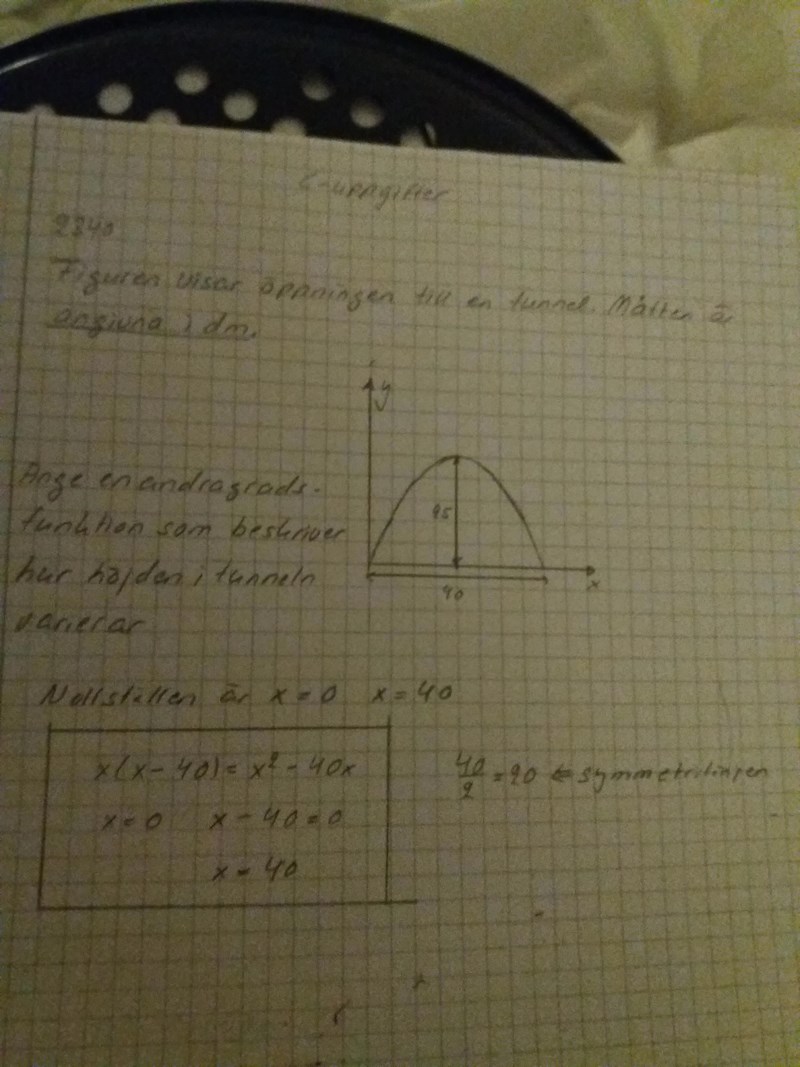 C-uppgifter
2340
Figuren visar öppningen till en tunnel. Måtten är
angivna i dm.
y
Ange en andragrads-
funktion som beskriver
hur höjden i tunneln
varierar
45
x
40
Nollställen är x = 0 x = 40
x(x - 40) = x² - 40x
x = 0 x - 40 = 0
x = 40
40/2 = 20 ⇐ symmetrilinjen